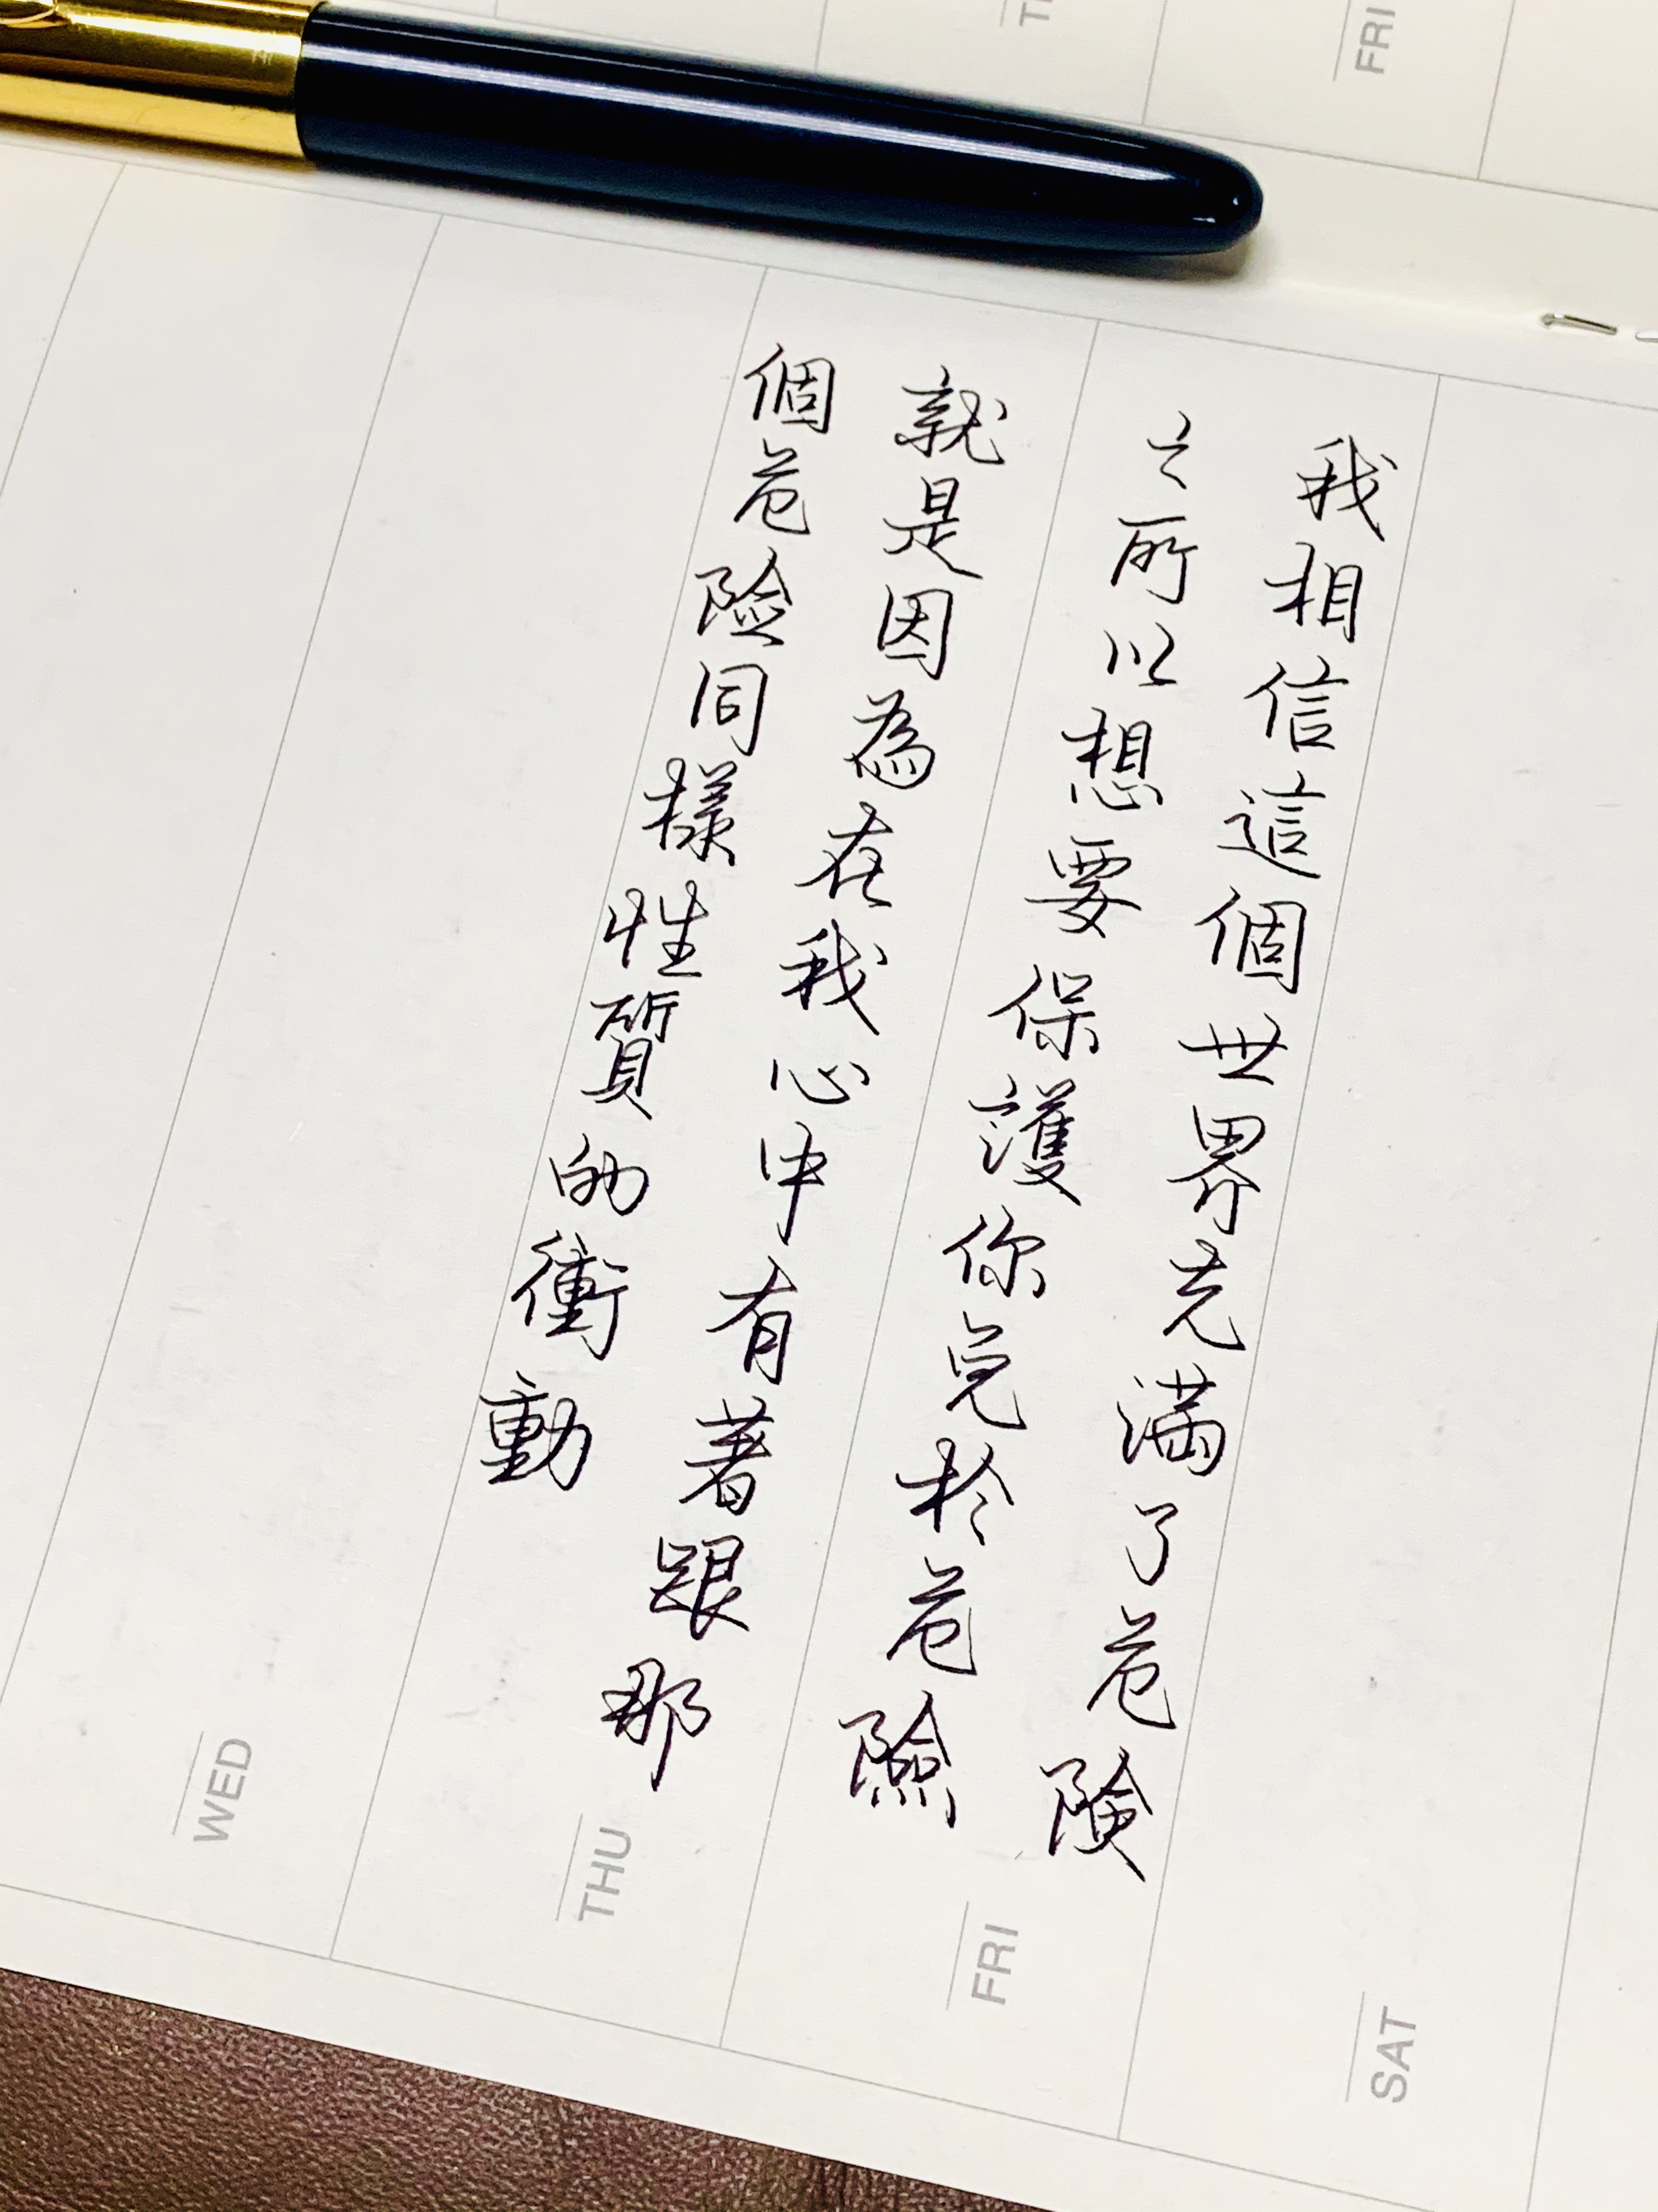 我相信這個世界充滿了危險
之所以想要保護你免於危險
就是因為在我心中有著跟那
個危險同樣性質的衝動
WED
THU
FRI
SAT
FRI